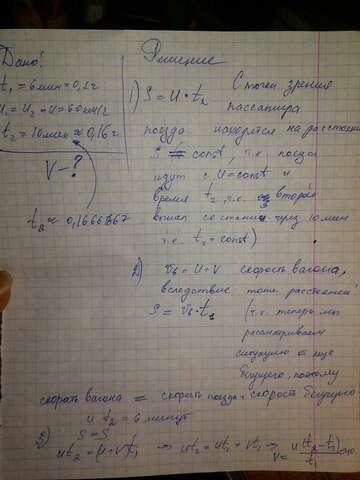 Дано:
t₁ = 6 мин = 0,1 ч
u₁ = u₂ = u = 60 км/ч
t₂ = 10 мин ≈ 0,16 ч
V - ?
t₂ ≈ 0,1666667
Решение
1) S = u · t₂ С точки зрения
пассажира
поезда находятся на расстоянии
S = const, т.к. поезда
идут с u = const и
время t₂, т.к. второй
со станции через 10 мин
т.е. t₂ = const)
2) v₆ = u + v скорость вагона,
вследствие тоже расстояний
S = v₆ · t₁ (т.к. теперь мы
рассматриваем
ситуацию от лица
бегущего, поэтому
скорость вагона = скорость поезда + скорость бегущего
и t₂ = 6 минут
3) S = S
ut₂ = (u + v)t₁ ⇒ ut₂ = ut₁ + vt₁ ⇒ V = u(t₂ - t₁)/t₁